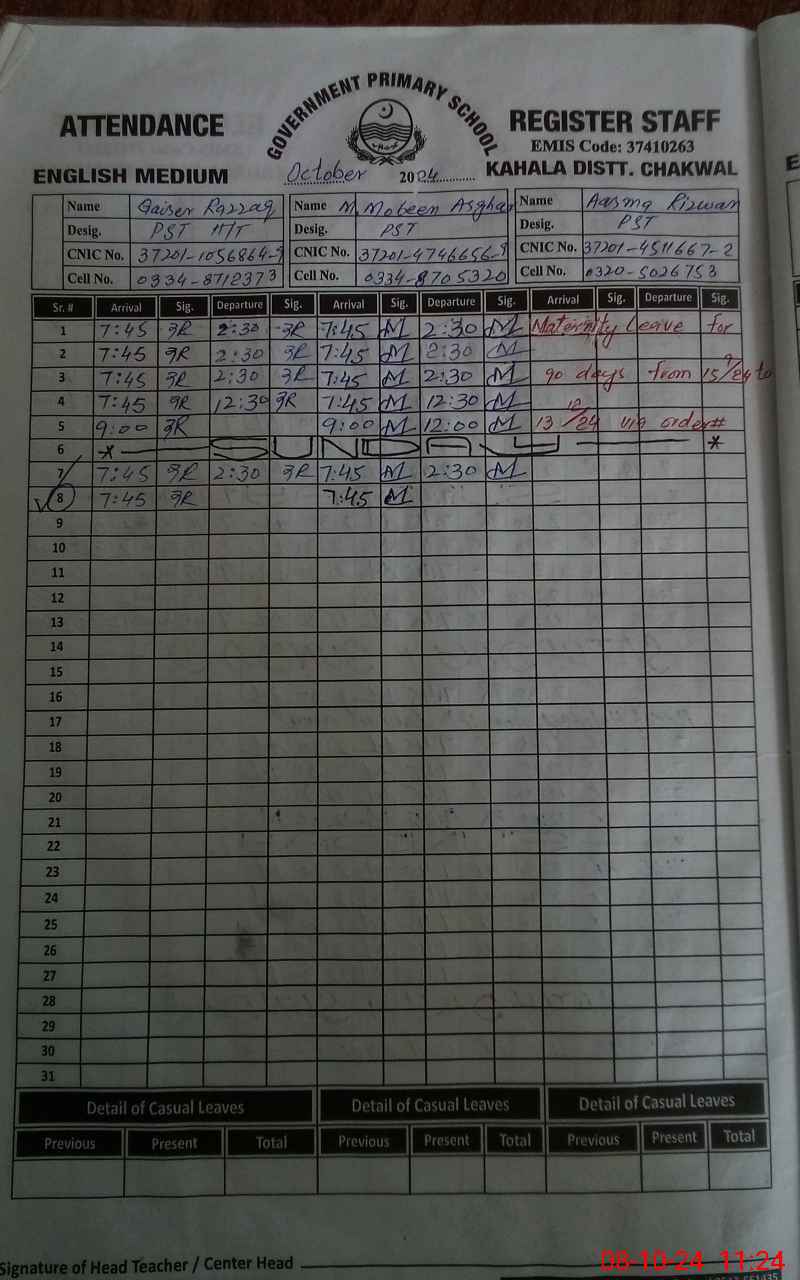 GOVERNMENT PRIMARY SCHOOL
ATTENDANCE REGISTER STAFF
EMIS Code: 37410263
ENGLISH MEDIUM October 2024 KAHALA DISTT. CHAKWAL
Name Qaiser Razzaq Name M. Mobeen Asghar Name Aasma Rizwan
Desig. PST H/T Desig. PST Desig. PST
CNIC No. 37201-1056864-9 CNIC No. 37201-4746656-9 CNIC No. 37201-4511667-2
Cell No. 0334-8712373 Cell No. 0334-8705320 Cell No. 0320-5026753
Sr. # Arrival Sig. Departure Sig. Arrival Sig. Departure Sig. Arrival Sig. Departure Sig.
1 7:45 QR 2:30 QR 7:45 M 2:30 M Maternity Leave for
2 7:45 QR 2:30 QR 7:45 M 2:30 M
3 7:45 QR 2:30 QR 7:45 M 2:30 M 90 days from 15 9/24 to
4 7:45 QR 12:30 QR 7:45 M 12:30 M
5 9:00 QR 9:00 M 12:00 M 13 12/24 via order#
6 * SUNDAY *
7 7:45 QR 2:30 QR 7:45 M 2:30 M
8 7:45 QR 7:45 M
9
10
11
12
13
14
15
16
17
18
19
20
21
22
23
24
25
26
27
28
29
30
31
Detail of Casual Leaves Detail of Casual Leaves Detail of Casual Leaves
Previous Present Total Previous Present Total Previous Present Total
Signature of Head Teacher / Center Head
08-10-24 11:24